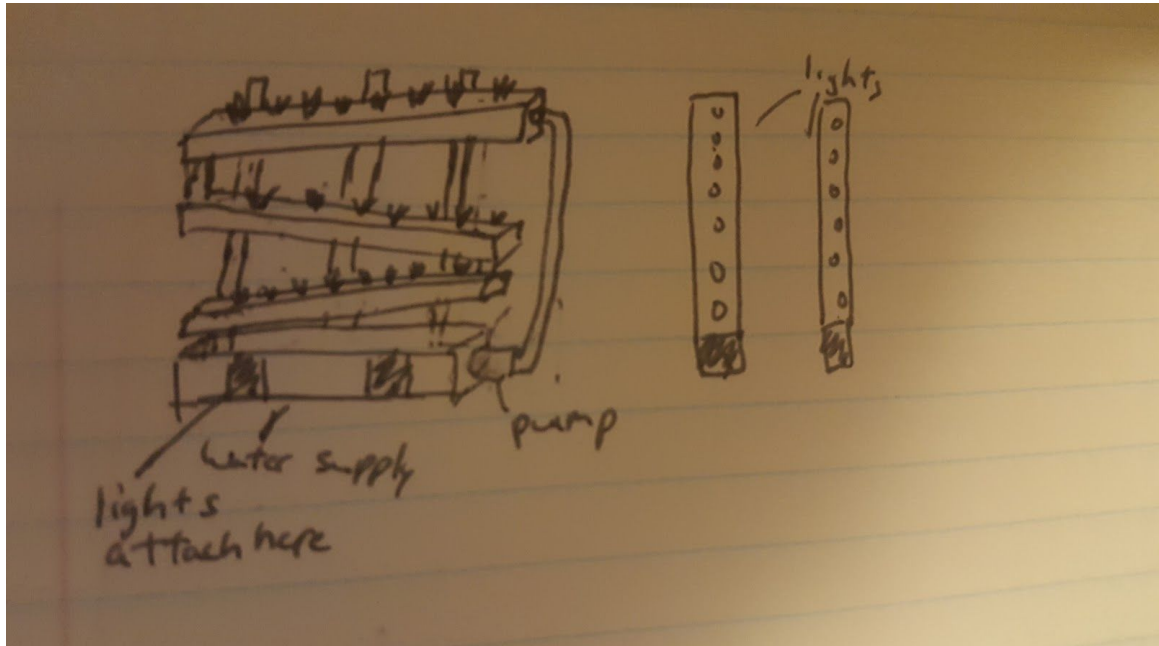 lights
pump
water supply
lights
attach here